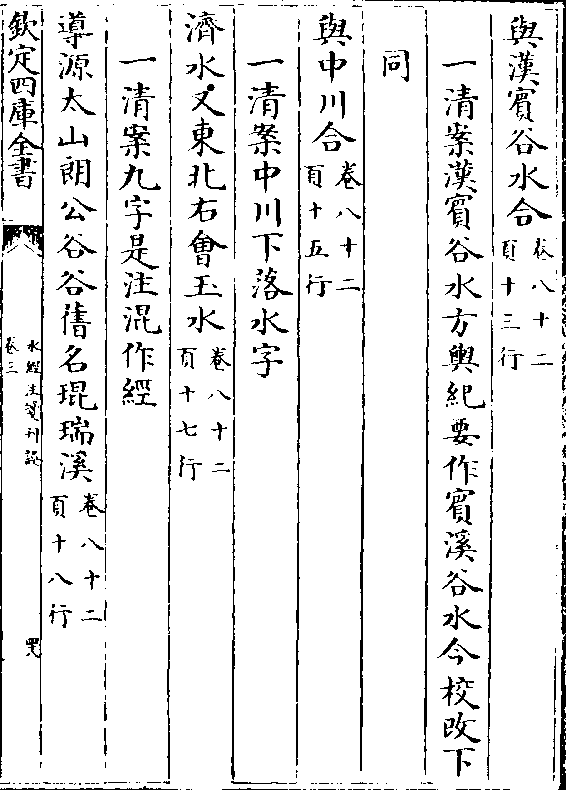 與漢賓谷水合卷八十二頁十三行
一清案漢賓谷水方輿紀要作賓溪谷水今校改下
同
與中川合卷八十二頁十五行
一清案中川下落水字
濟水又東北右會玉水卷八十二頁十七行
一清案九字是注混作經
導源太山朗公谷谷舊名琨瑞溪卷八十二頁十八行
欽定四庫全書
水經注箋刊誤
卷三